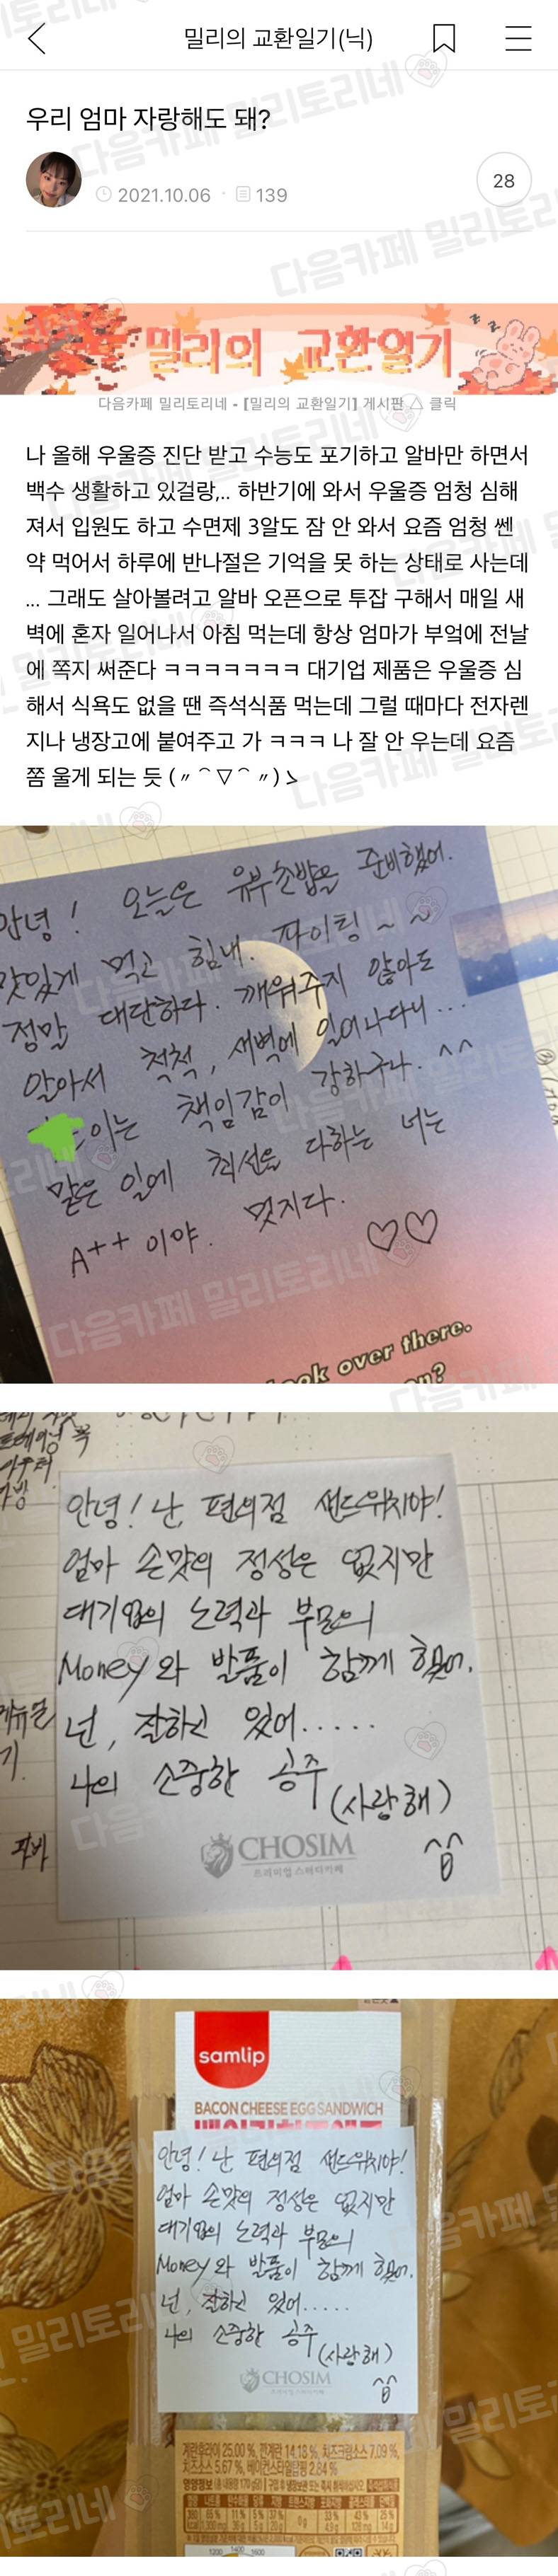 밀리의 교환일기(닉)
우리 엄마 자랑해도 돼?
2021.10.06 · 139
28
밀리의 교환일기
다음카페 밀리토리네 - [밀리의 교환일기] 게시판 △ 클릭
나 올해 우울증 진단 받고 수능도 포기하고 알바만 하면서
백수 생활하고 있걸랑,.. 하반기에 와서 우울증 엄청 심해
져서 입원도 하고 수면제 3알도 잠 안 와서 요즘 엄청 쎈
약 먹어서 하루에 반나절은 기억을 못 하는 상태로 사는데
... 그래도 살아볼려고 알바 오픈으로 투잡 구해서 매일 새
벽에 혼자 일어나서 아침 먹는데 항상 엄마가 부엌에 전날
에 쪽지 써준다 ㅋㅋㅋㅋㅋㅋㅋ 대기업 제품은 우울증 심
해서 식욕도 없을 땐 즉석식품 먹는데 그럴 때마다 전자렌
지나 냉장고에 붙여주고 가 ㅋㅋㅋ 나 잘 안 우는데 요즘
쫌 울게 되는 듯 (〃⌒▽⌒〃)ゝ
안녕! 오늘은 유부초밥을 준비했어.
맛있게 먹고 힘내. 파이팅~~
정말 대단하다. 깨워주지 않아도
알아서 척척, 새벽에 일어나다니...
이는 책임감이 강하구나. ^^
맡은 일에 최선을 다하는 너는
A++ 이야. 멋지다. ♡♡
look over there.
안녕! 난, 편의점 샌드위치야!
엄마 손맛의 정성은 없지만
대기업의 노력과 부모의
Money와 발품이 함께 했어.
넌, 잘하고 있어.....
나의 소중한 공주 (사랑해)
CHOSIM
프리미엄 스터디카페
samlip
BACON CHEESE EGG SANDWICH
안녕! 난 편의점 샌드위치야!
엄마 손맛의 정성은 없지만
대기업의 노력과 부모의
Money와 발품이 함께 했어.
넌, 잘하고 있어.....
나의 소중한 공주 (사랑해)
CHOSIM
프리미엄 스터디카페
계란후라이 25.00 %, 깐계란 14.18 %, 치즈크림소스 7.09 %,
치즈소스 5.67 %, 베이컨스타일토핑 2.84 %
다음카페 밀리토리네